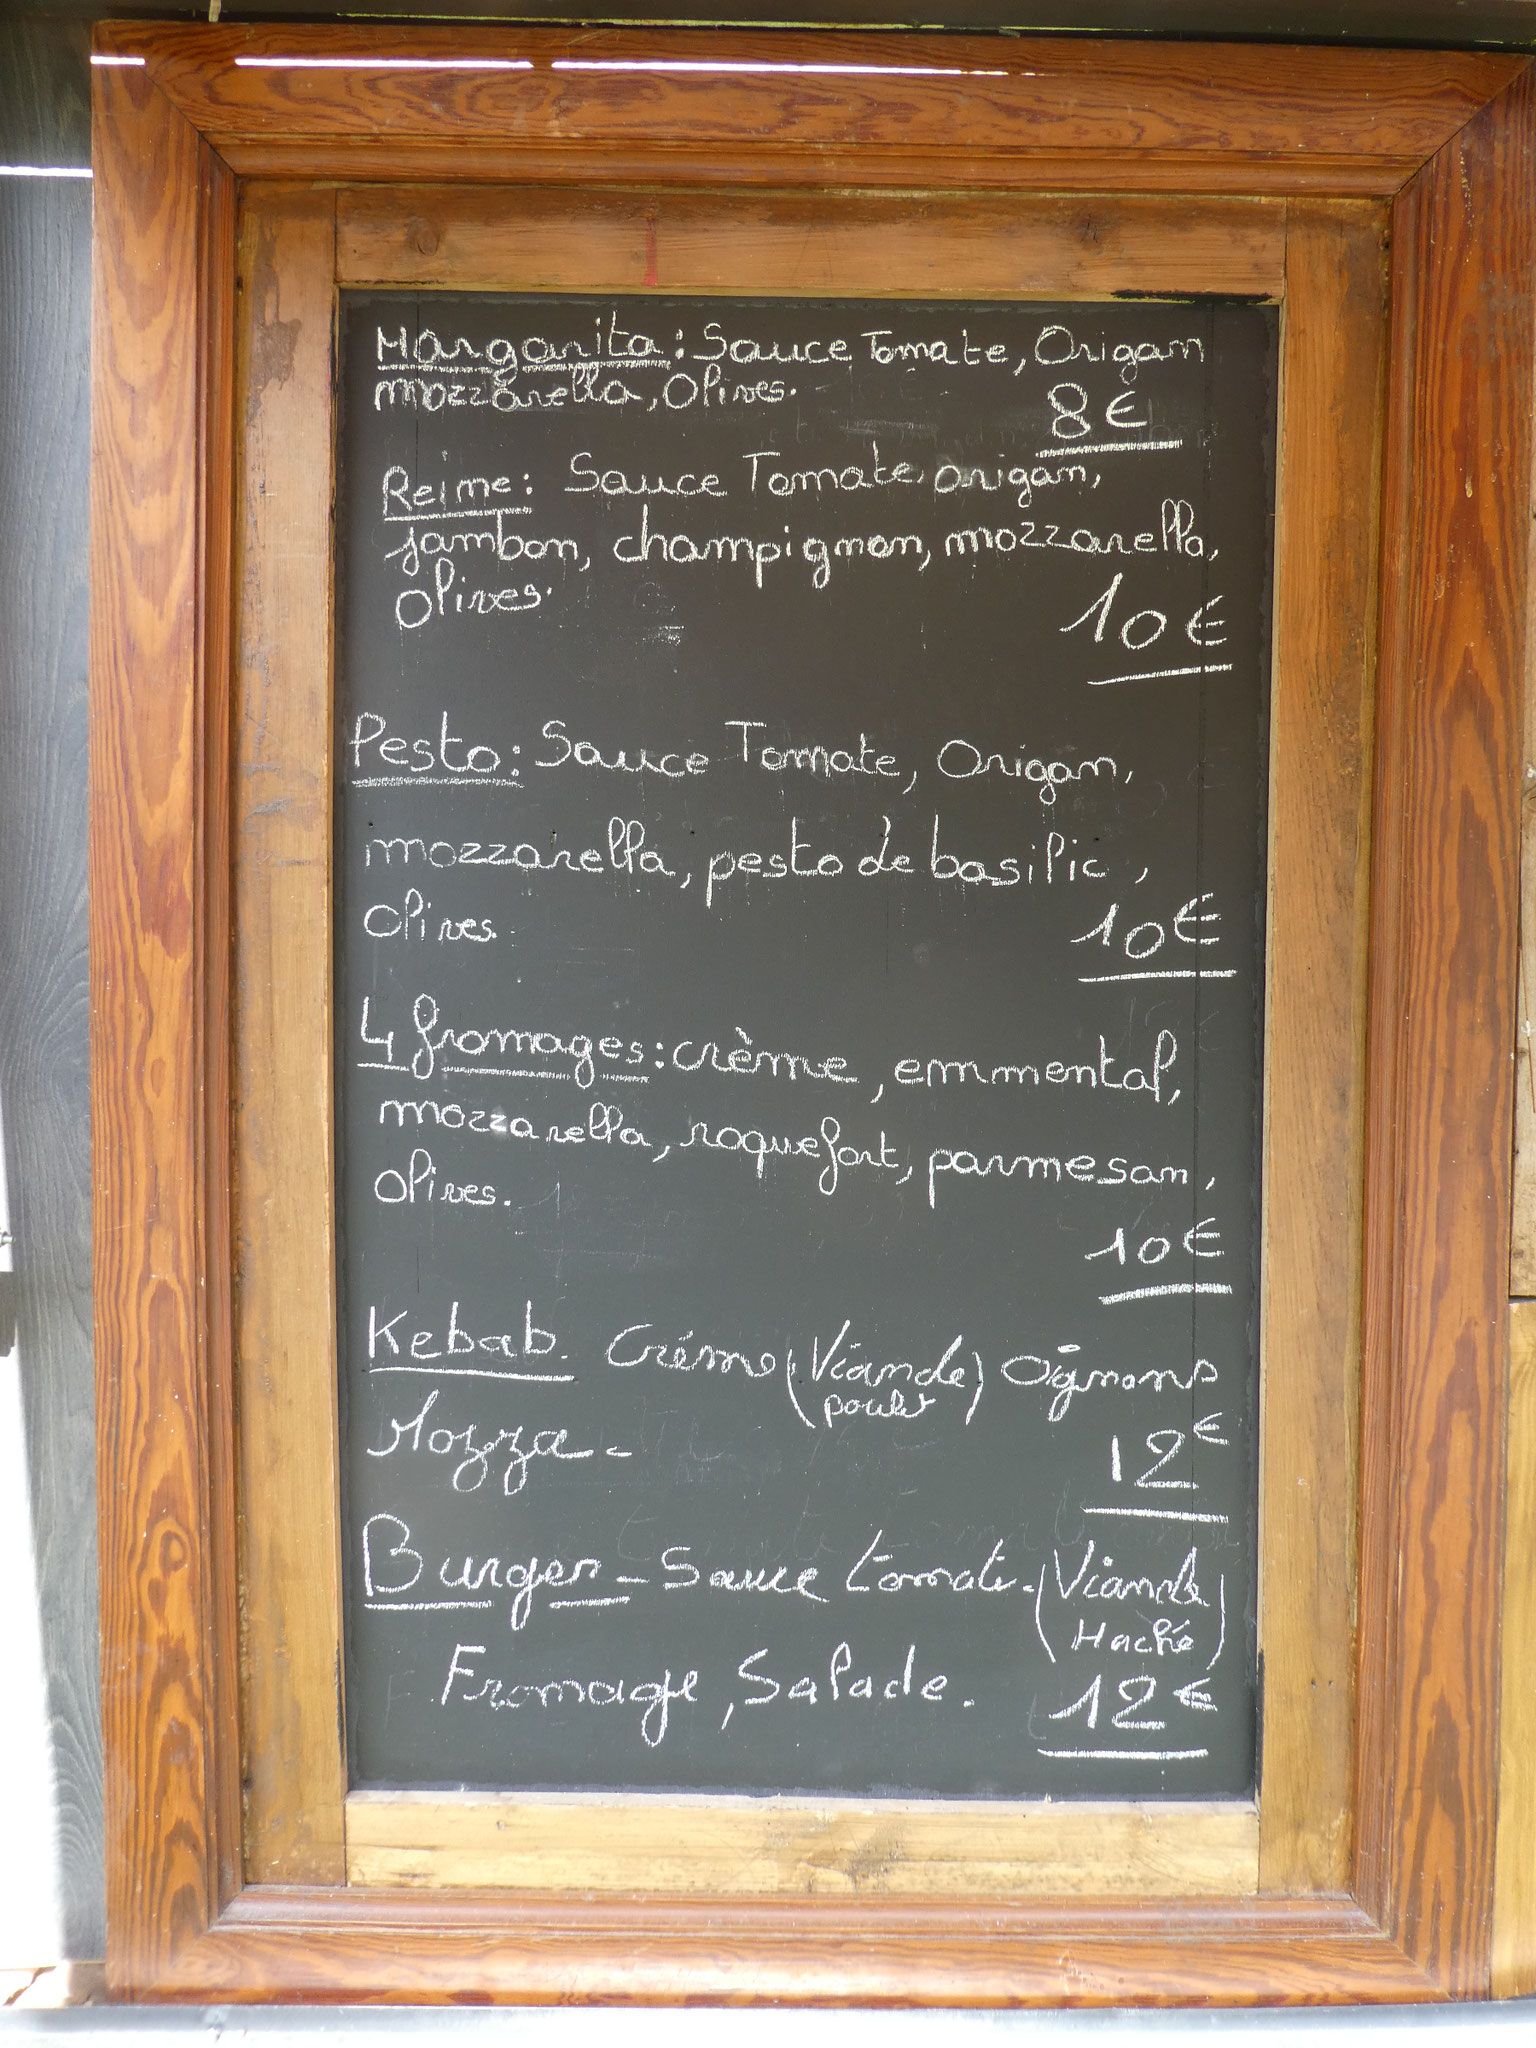 Margarita : Sauce Tomate, Origan
mozzarella, Olives.
8€
Reine : Sauce Tomate, origan,
jambon, champignon, mozzarella,
Olives.
10€
Pesto : Sauce Tomate, Origan,
mozzarella, pesto de basilic,
Olives.
10€
4 fromages : crème, emmental,
mozzarella, roquefort, parmesan,
Olives.
10€
Kebab. Créme (Viande poulet) Oignons
Mozza -
12€
Burger - Sauce tomate. (Viande Haché)
Fromage, Salade.
12€